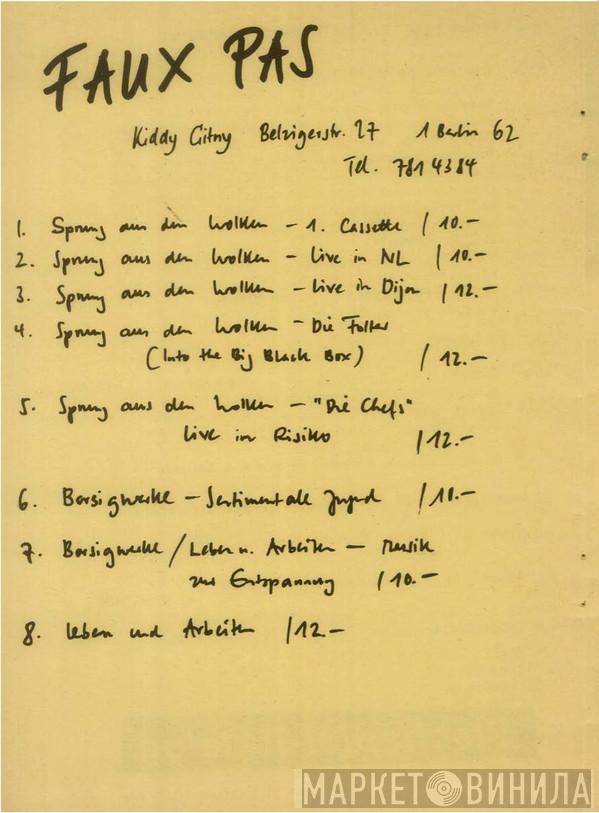 FAUX PAS
Kiddy Citny Belzigerstr. 27 1 Berlin 62
Tel. 781 4384
1. Sprung aus den Wolken – 1. Cassette / 10.–
2. Sprung aus den Wolken – Live in NL / 10.–
3. Sprung aus den Wolken – Live in Dijon / 12.–
4. Sprung aus den Wolken – Die Folter
(Into the Big Black Box) / 12.–
5. Sprung aus den Wolken – "Die Chefs"
live im Risiko / 12.–
6. Borsigwerke – Sentimentale Jugend / 10.–
7. Borsigwerke / Leben u. Arbeiten – Musik
zur Entspannung / 10.–
8. Leben und Arbeiten / 12–
МАРКЕТ ВИНИЛА